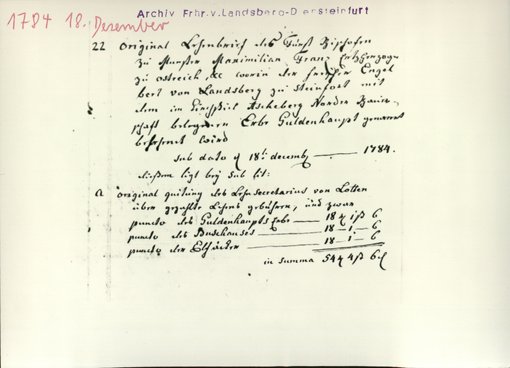 Archiv Frhr.v.Landsberg-Drensteinfurt
1784 18. Desember
22 Original Lehenbrief des Fürst Bischofen
zu Munster Maximilian Franz Ertzherzogs
zu ostreich &c worin der freyherr Engel
bert von Landsberg zu Steinfort mit
dem im Kirchspiel Ascheberg Norder Baur-
schaft belegenen Erbe Guldenhaupt genannt
belehnet wird
sub dato d 18t decemb 1784.
diesem ligt bey sub lit:
a original quitung des Lehnsecretarius von Lotten
über gezahlte Lehns gebühren, und zwar
puncto des Guldenhaupts Erbe 18 1 6
puncto des Buschauses 18 - 1 - 6
puncto der 18 - 1 - 6
in summa 54 4 6